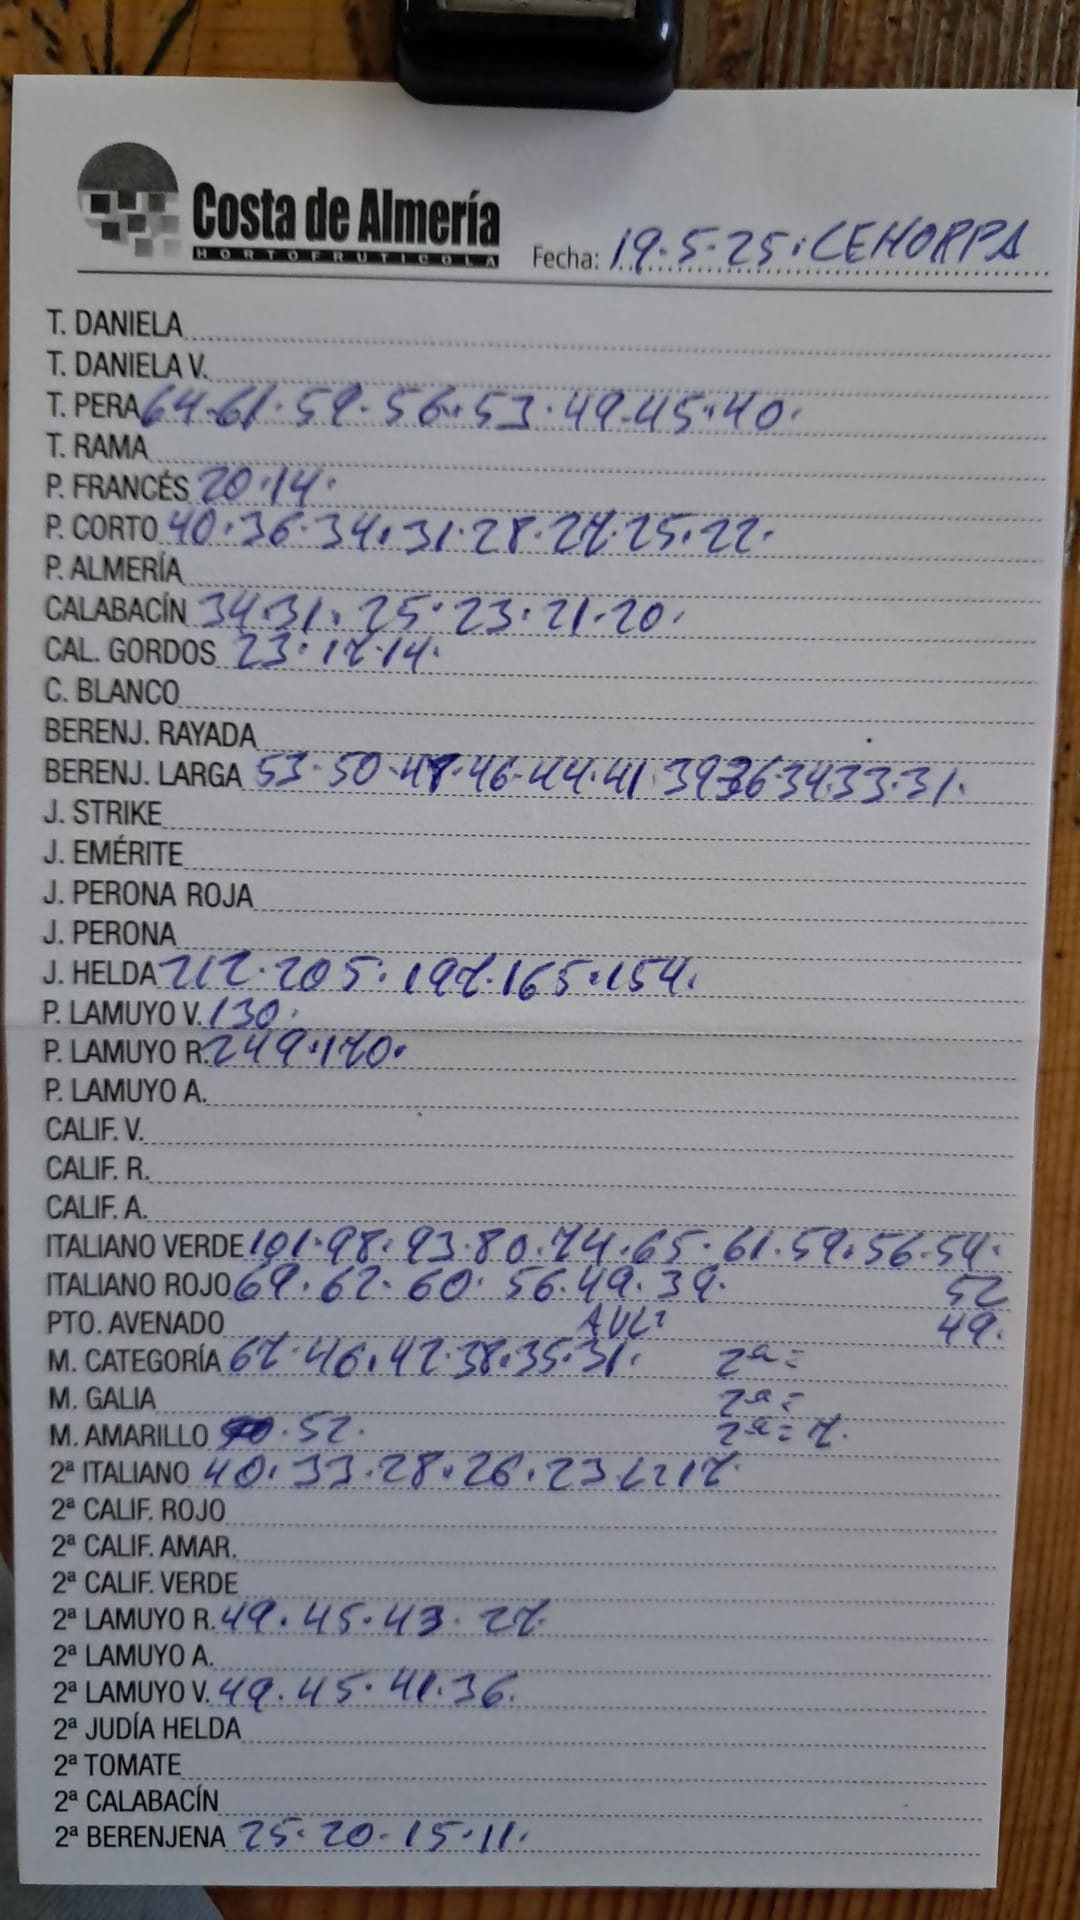 Costa de Almería
HORTOFRUTICOLA
Fecha: 19.5.25. CEHORPA
T. DANIELA
T. DANIELA V.
T. PERA 64.61.59.56.53.49.45.40.
T. RAMA
P. FRANCÉS 20.14.
P. CORTO 40.36.34.31.28.27.25.22.
P. ALMERÍA
CALABACÍN 34.31.25.23.21.20.
CAL. GORDOS 23.17.14.
C. BLANCO
BERENJ. RAYADA
BERENJ. LARGA 53.50.48.46.44.41.39.36.34.33.31.
J. STRIKE
J. EMÉRITE
J. PERONA ROJA
J. PERONA
J. HELDA 212.205.197.165.154.
P. LAMUYO V. 130.
P. LAMUYO R. 249.170.
P. LAMUYO A.
CALIF. V.
CALIF. R.
CALIF. A.
ITALIANO VERDE 101.98.93.80.74.65.61.59.56.54.
ITALIANO ROJO 69.62.60.56.49.39. 52
PTO. AVENADO 49.
M. CATEGORÍA 67.46.42.38.35.31. 2ª=
M. GALIA 2ª=
M. AMARILLO 52. 2ª=7.
2ª ITALIANO 40.33.28.26.23. 17.
2ª CALIF. ROJO
2ª CALIF. AMAR.
2ª CALIF. VERDE
2ª LAMUYO R. 49.45.43.27.
2ª LAMUYO A.
2ª LAMUYO V. 49.45.41.36.
2ª JUDÍA HELDA
2ª TOMATE
2ª CALABACÍN
2ª BERENJENA 25.20.15.11.